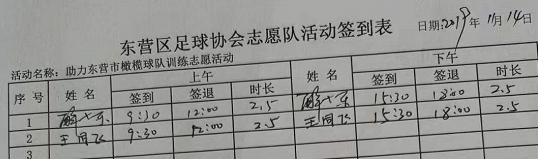 东营区足球协会志愿队活动签到表
日期:2019年11月14日
活动名称：助力东营市橄榄球队训练志愿活动
序号 姓名 上午 姓名 下午
签到 签退 时长 签到 签退 时长
1 9:30 12:00 2.5 15:30 18:00 2.5
2 王同飞 9:30 12:00 2.5 王同飞 15:30 18:00 2.5
3